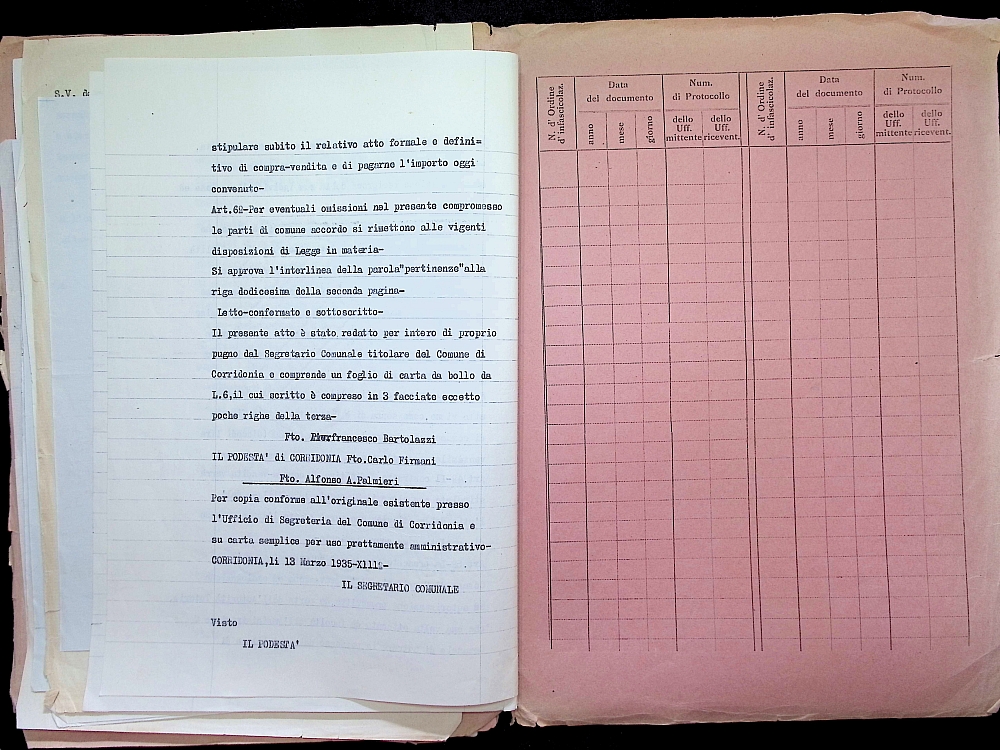 S.V. de
stipulare subito il relativo atto formale e defini=
tivo di compra-vendita e di pagarne l'importo oggi
convenuto-
Art.6º-Per eventuali omissioni nel presente compromesso
le parti di comune accordo si rimettono alle vigenti
disposizioni di Legge in materia-
Si approva l'interlinea della parola"pertinenze"alla
riga dodicesima della seconda pagina-
Letto-confermato e sottoscritto-
Il presente atto è stato redatto per intero di proprio
pugno dal Segretario Comunale titolare del Comune di
Corridonia e comprende un foglio di carta da bollo da
L.6,il cui scritto è compreso in 3 facciate eccetto
poche righe della terza-
Fto. Pierfrancesco Bartolazzi
IL PODESTA' di CORRIDONIA Fto.Carlo Firmani
Fto. Alfonso A.Palmieri
Per copia conforme all'originale esistente presso
l'Ufficio di Segreteria del Comune di Corridonia e
su carta semplice per uso prettamente amministrativo-
CORRIDONIA,li 13 Marzo 1935-XIII-
IL SEGRETARIO COMUNALE
Visto
IL PODESTA'
N. d' Ordine
d' infascicolaz.
Data
del documento
anno
mese
giorno
Num.
di Protocollo
dello
Uff.
mittente
dello
Uff.
ricevent.
N. d' Ordine
d' infascicolaz.
Data
del documento
anno
mese
giorno
Num.
di Protocollo
dello
Uff.
mittente
dello
Uff.
ricevent.